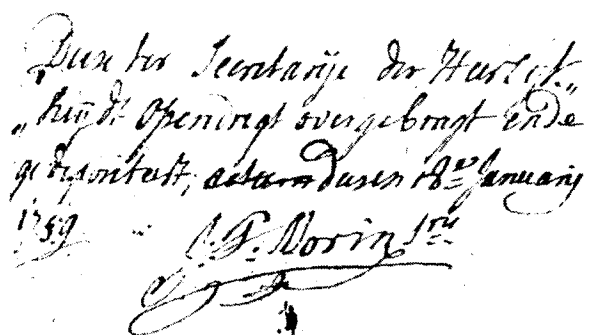 Dese ter Secretarije der Heerlyk„
„heijdt Opendregt overgebragt Ende
gedeponeert, actum desen 18en January
1759
J. F. Morin Sris